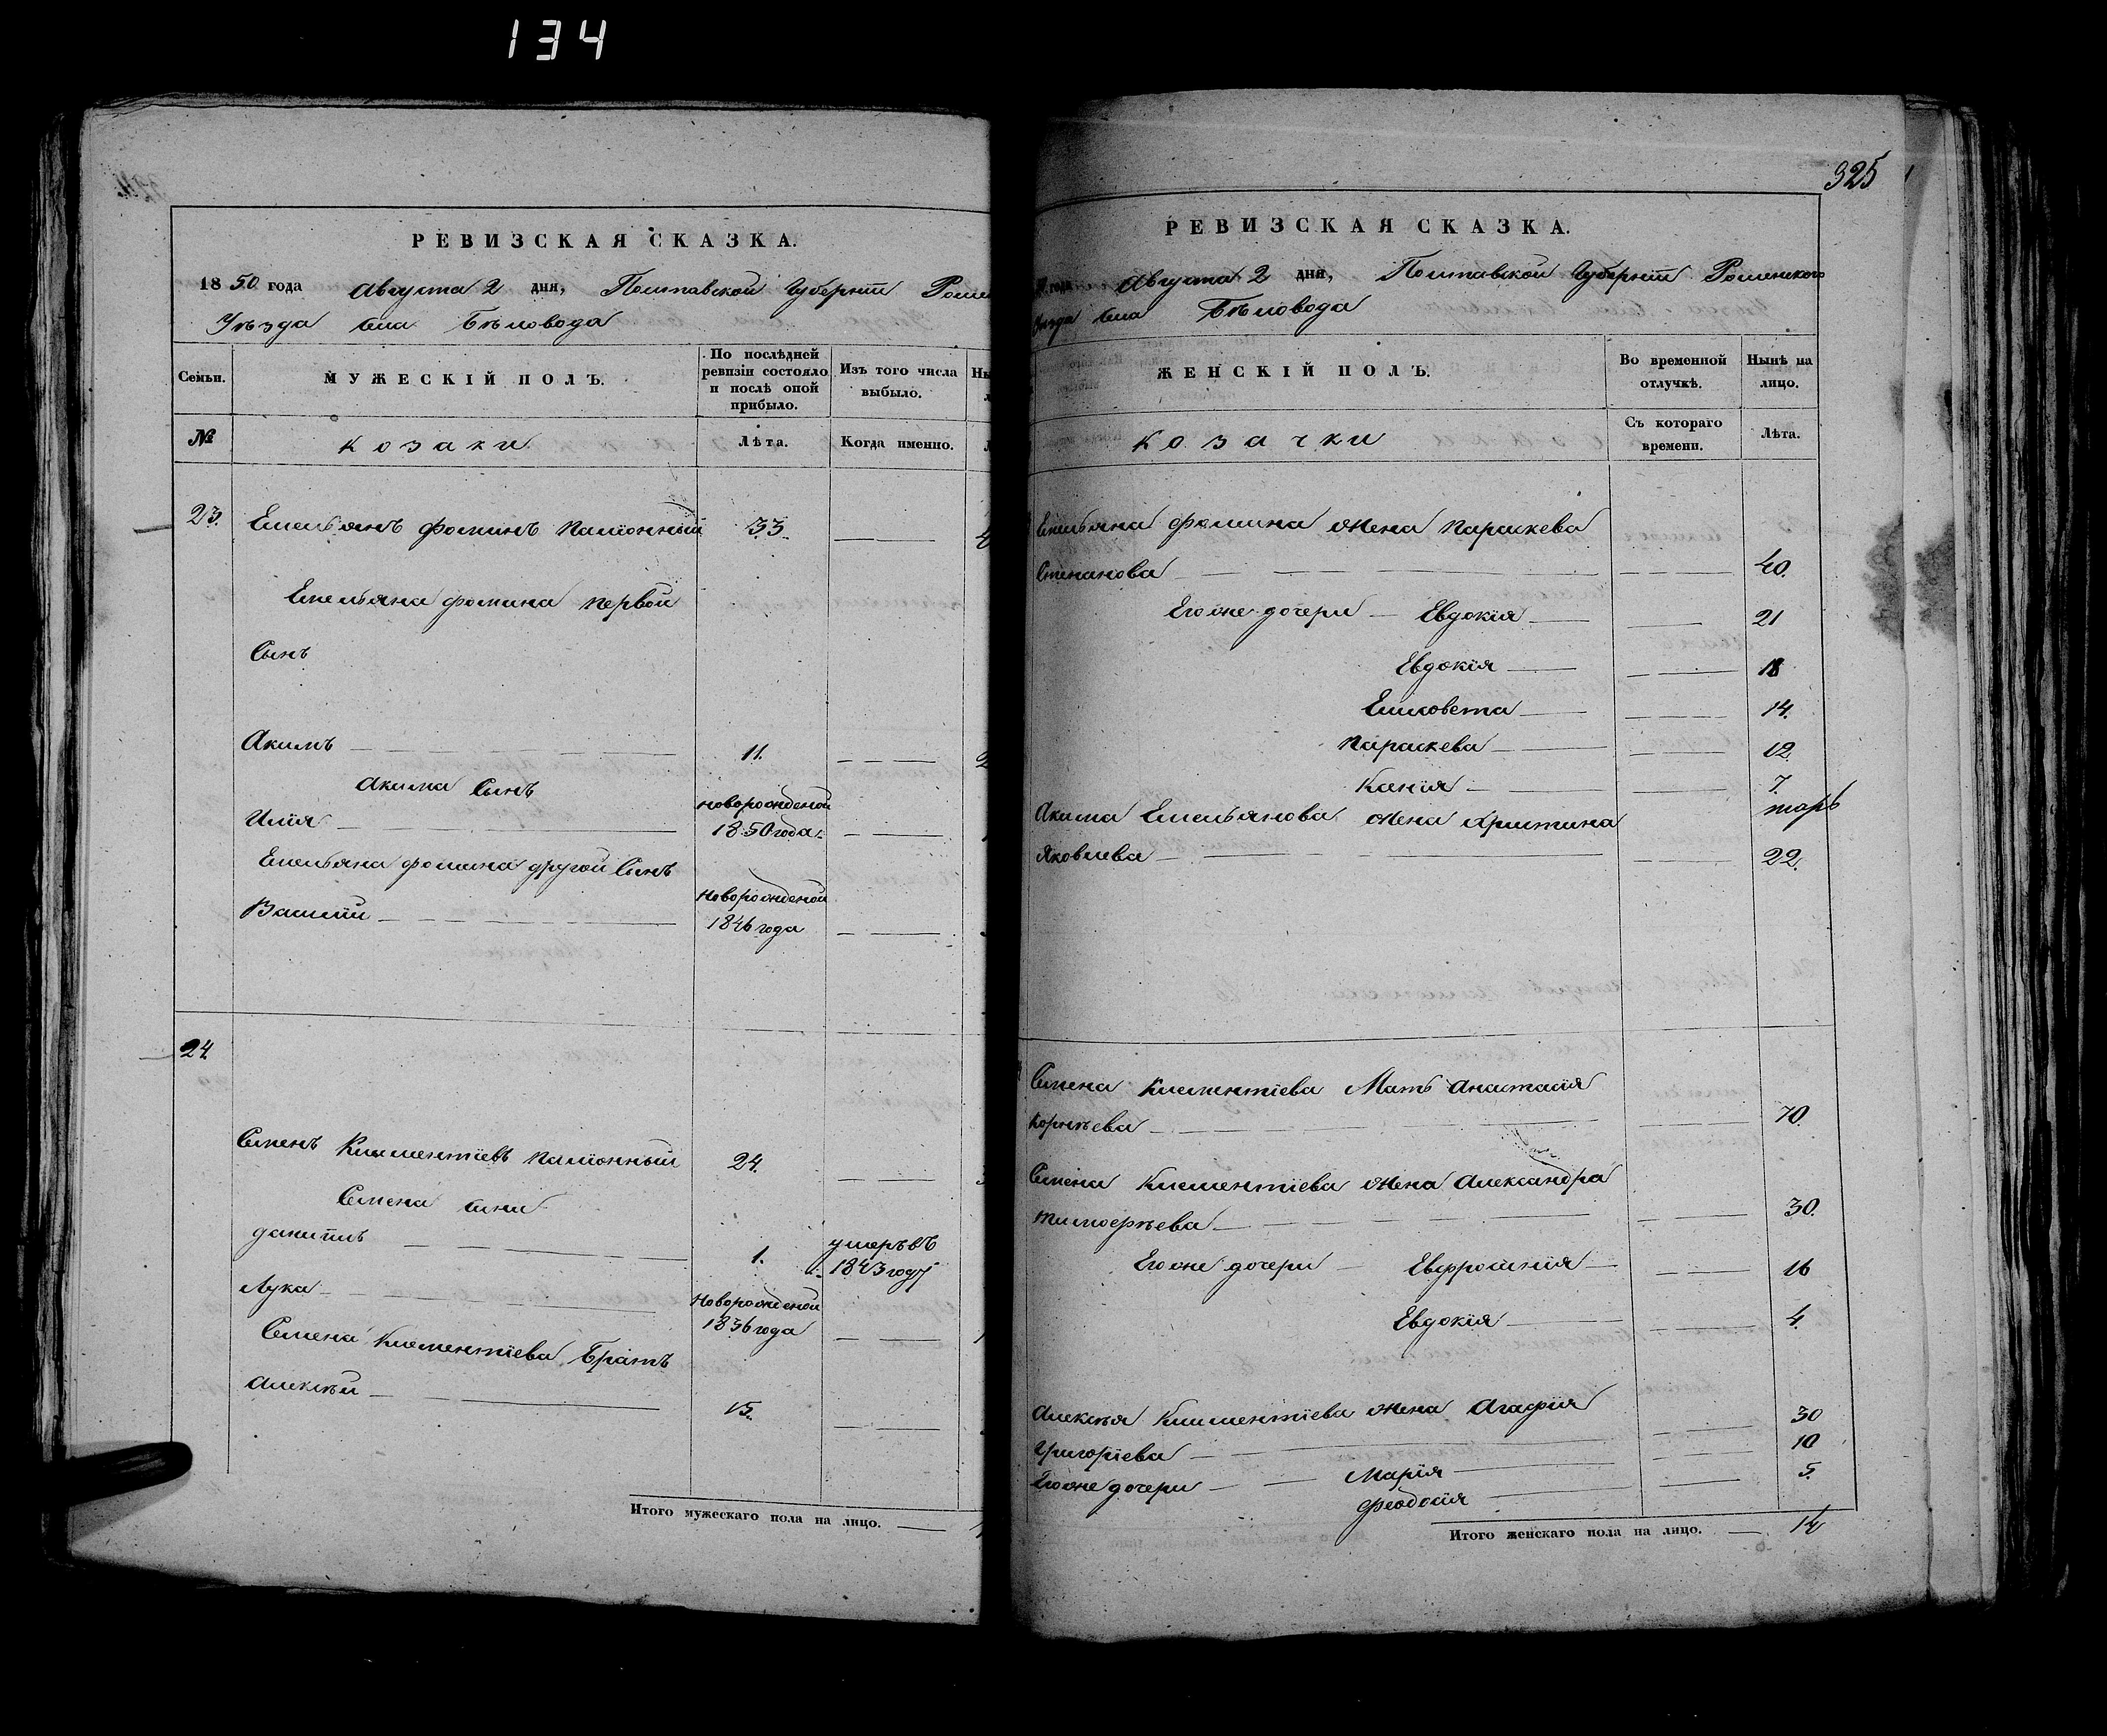 134
РЕВИЗСКАЯ СКАЗКА.
1850 года Августа 2 дня, Полтавской Губерніи Роме
Уѣзда Села Бѣловода
Семьи.
МУЖЕСКІЙ ПОЛЪ.
По послѣдней ревизіи состояло и послѣ оной прибыло.
Изъ того числа выбыло.
№
Козаки
Лѣта.
Когда именно.
23. Емельянъ Фоминъ Палюнный 33
Емельяна Фомина первой
Сынъ
Акимъ 11.
Акима Сынъ
Илія новорожденой 1850 года.
Емельяна Фомина другой Сынъ
Василій новорожденой 1846 года
24
Семенъ Климентіевъ Палюнный 24.
Семена сыни
Данилъ 1. умеръ въ 1843 году
Лука новорожденой 1836 года
Семена Климентіева Братъ
Алексѣй 15.
Итого мужескаго пола на лицо.
325
РЕВИЗСКАЯ СКАЗКА.
года Августа 2 дня, Полтавской Губерніи Роменского
Уѣзда Села Бѣловода
ЖЕНСКІЙ ПОЛЪ.
Во временной отлучкѣ.
Нынѣ на лицо.
Козачки
Съ котораго времени.
Лѣта.
Емельяна Фомина жена Параскева
Степанова 40.
Его же дочери Евдокія 21
Евдокія 18
Елисовета 14.
Параскева 12.
Ксенія 7.
Акима Емельянова жена Христина
Яковлева 22.
Семена Климентіева Мать Анастасія
Корнѣева 70
Семена Климентіева жена Александра
Тимоѳѣева 30.
Его же дочери Евфросинія 16
Евдокія 4.
Алексѣя Климентіева жена Агафія
Григоріева 30
Его же дочери Марія 10
Феодосія 5.
Итого женскаго пола на лицо. 14